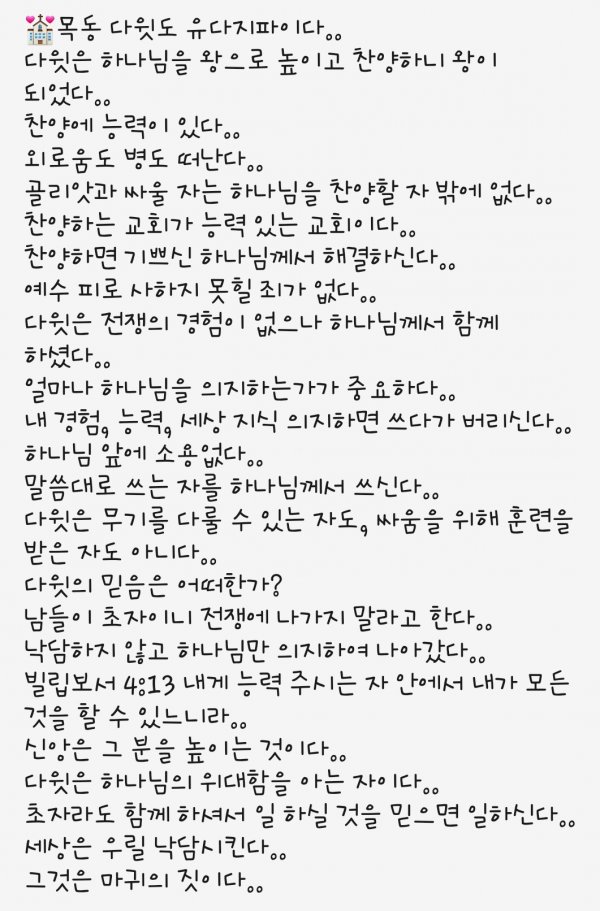 💒목동 다윗도 유다지파이다..
다윗은 하나님을 왕으로 높이고 찬양하니 왕이
되었다..
찬양에 능력이 있다..
외로움도 병도 떠난다..
골리앗과 싸울 자는 하나님을 찬양할 자 밖에 없다..
찬양하는 교회가 능력 있는 교회이다..
찬양하면 기쁘신 하나님께서 해결하신다..
예수 피로 사하지 못힐 죄가 없다..
다윗은 전쟁의 경험이 없으나 하나님께서 함께
하셨다..
얼마나 하나님을 의지하는가가 중요하다..
내 경험, 능력, 세상 지식 의지하면 쓰다가 버리신다..
하나님 앞에 소용없다..
말씀대로 쓰는 자를 하나님께서 쓰신다..
다윗은 무기를 다룰 수 있는 자도, 싸움을 위해 훈련을
받은 자도 아니다..
다윗의 믿음은 어떠한가?
남들이 초자이니 전쟁에 나가지 말라고 한다..
낙담하지 않고 하나님만 의지하여 나아갔다..
빌립보서 4:13 내게 능력 주시는 자 안에서 내가 모든
것을 할 수 있느니라..
신앙은 그 분을 높이는 것이다..
다윗은 하나님의 위대함을 아는 자이다..
초자라도 함께 하셔서 일 하실 것을 믿으면 일하신다..
세상은 우릴 낙담시킨다..
그것은 마귀의 짓이다..